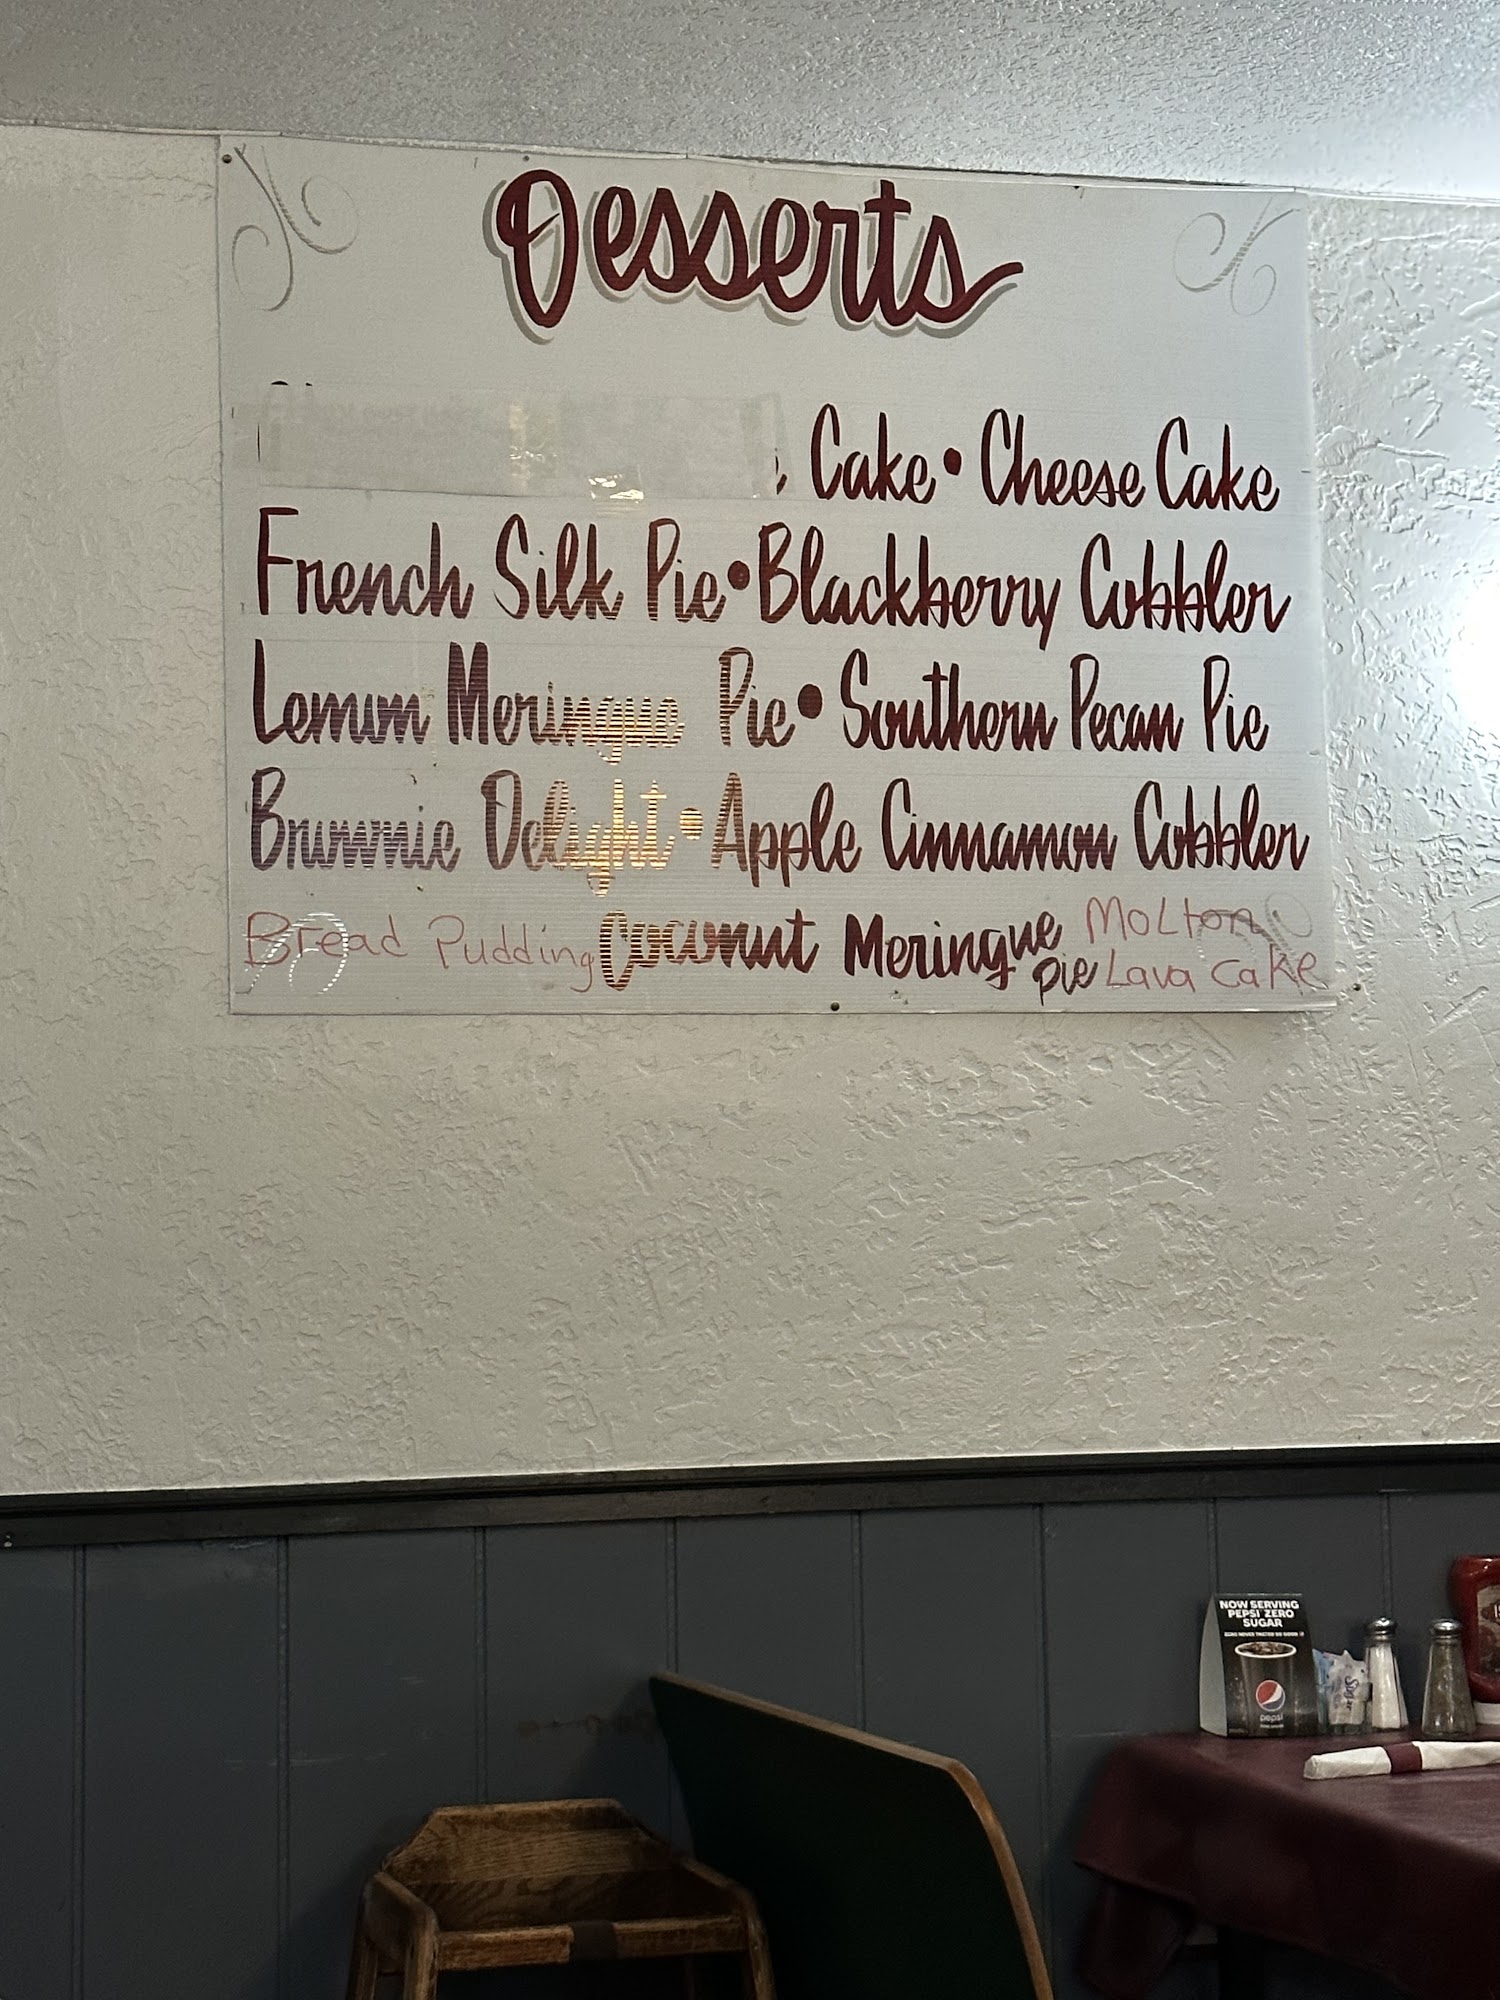 Desserts
Cake • Cheese Cake
French Silk Pie • Blackberry Cobbler
Lemon Meringue Pie • Southern Pecan Pie
Brownie Delight • Apple Cinnamon Cobbler
Bread Pudding Coconut Meringue Pie Molton Lava Cake
NOW SERVING
PEPSI ZERO
SUGAR
pepsi
Sugar